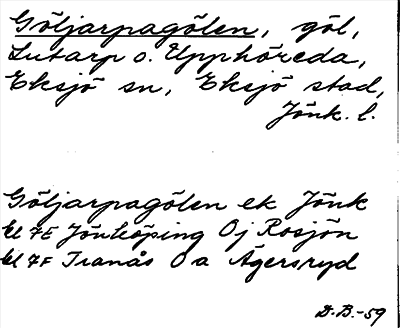 Göljarpagölen, göl,
Lutarp o. Upphöreda,
Eksjö sn, Eksjö stad,
Jönk. l.
Göljarpagölen ek Jönk
bl 7E Jönköping 0j Rosjön
bl 7F Tranås 0a Ägersryd
D.B.-59